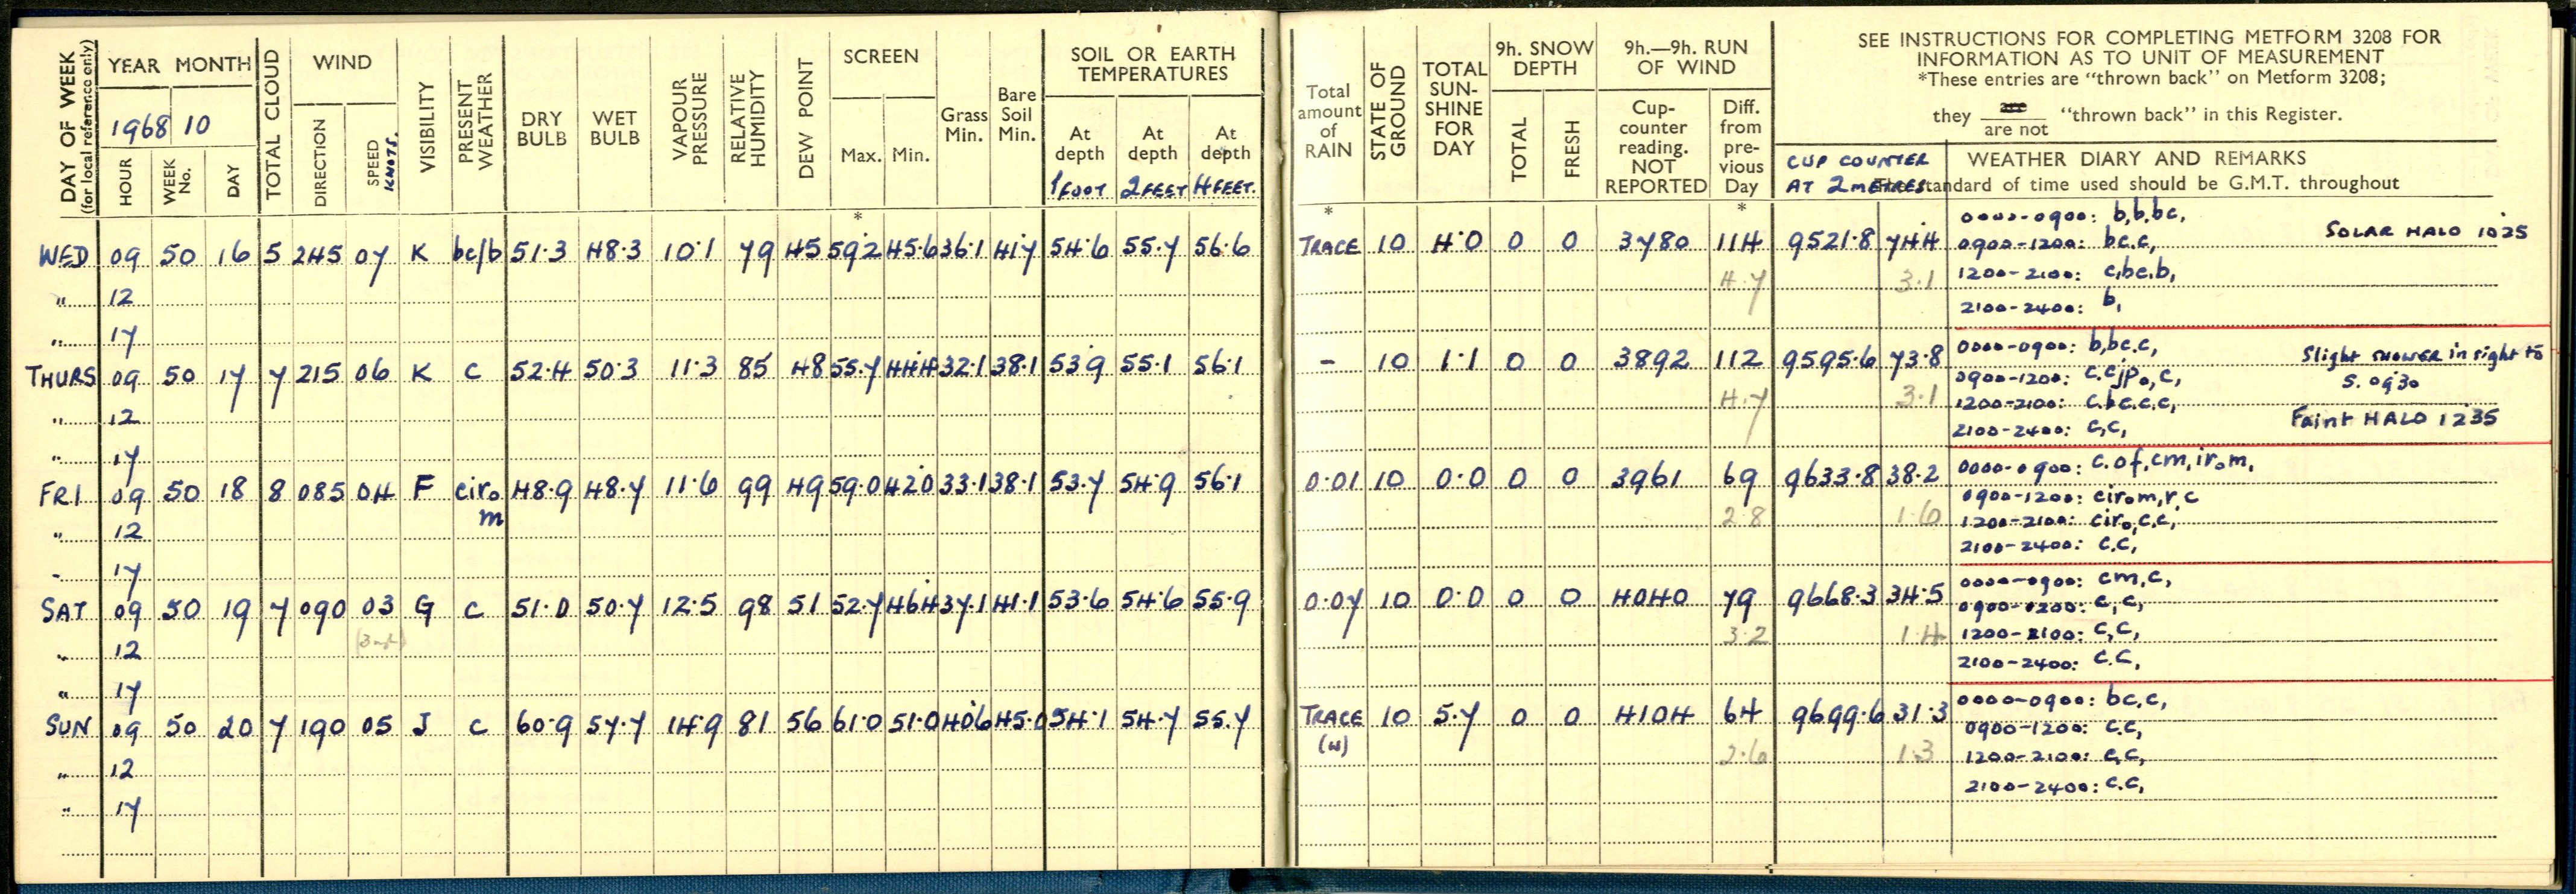 DAY OF WEEK
(for local reference only)
YEAR MONTH
1968 10
HOUR WEEK No. DAY
TOTAL CLOUD
WIND
DIRECTION SPEED KNOTS.
VISIBILITY
PRESENT WEATHER
DRY BULB
WET BULB
VAPOUR PRESSURE
RELATIVE HUMIDITY
DEW POINT
SCREEN
Max. Min.
*
Grass Min.
Bare Soil Min.
SOIL OR EARTH TEMPERATURES
At depth 1 FOOT At depth 2 FEET At depth 4 FEET.
Total amount of RAIN
*
STATE OF GROUND
TOTAL SUN-SHINE FOR DAY
9h. SNOW DEPTH
TOTAL FRESH
9h.—9h. RUN OF WIND
Cup-counter reading. NOT REPORTED
Diff. from pre-vious Day
*
SEE INSTRUCTIONS FOR COMPLETING METFORM 3208 FOR
INFORMATION AS TO UNIT OF MEASUREMENT
*These entries are "thrown back" on Metform 3208;
they are / are not "thrown back" in this Register.
CUP COUNTER
AT 2 METRES
WEATHER DIARY AND REMARKS
The standard of time used should be G.M.T. throughout
WED 09 50 16 5 245 07 K bc/b 51.3 48.3 10.1 79 45 59.2 45.6 36.1 41.7 54.6 55.7 56.6 TRACE 10 4.0 0 0 3780 114 9521.8 74.4
4.7 3.1
0000-0900: b,b,bc,
0900-1200: bc.c,
SOLAR HALO 1025
1200-2100: c,bc.b,
2100-2400: b,
" 12
" 17
THURS 09 50 17 7 215 06 K c 52.4 50.3 11.3 85 48 55.7 44.4 32.1 38.1 53.9 55.1 56.1 - 10 1.1 0 0 3892 112 9595.6 73.8
4.7 3.1
0000-0900: b,bc.c,
0900-1200: c.cjp₀,c,
Slight SHOWER in sight to
S. 0930
1200-2100: c.bc.c.c,
2100-2400: c,c,
Faint HALO 1235
" 12
" 17
FRI 09 50 18 8 085 04 F cir₀m 48.9 48.7 11.6 99 49 59.0 42.0 33.1 38.1 53.7 54.9 56.1 0.01 10 0.0 0 0 3961 69 9633.8 38.2
2.8 1.6
0000-0900: c.of,cm,ir₀m,
0900-1200: cir₀m,r,c
1200-2100: cir₀,c.c,
2100-2400: c.c,
" 12
" 17
SAT 09 50 19 7 090 03 G c 51.0 50.7 12.5 98 51 52.7 46.4 37.1 41.1 53.6 54.6 55.9 0.07 10 0.0 0 0 4040 79 9668.3 34.5
3.2 1.4
0000-0900: cm,c,
0900-1200: c,c,
1200-2100: c,c,
2100-2400: c.c,
" 12
" 17
SUN 09 50 20 7 190 05 J c 60.9 57.7 14.9 81 56 61.0 51.0 40.6 45.0 54.1 54.7 55.7 TRACE (w) 10 5.7 0 0 4104 64 9699.6 31.3
2.6 1.3
0000-0900: bc,c,
0900-1200: c.c,
1200-2100: c,c,
2100-2400: c.c,
" 12
" 17